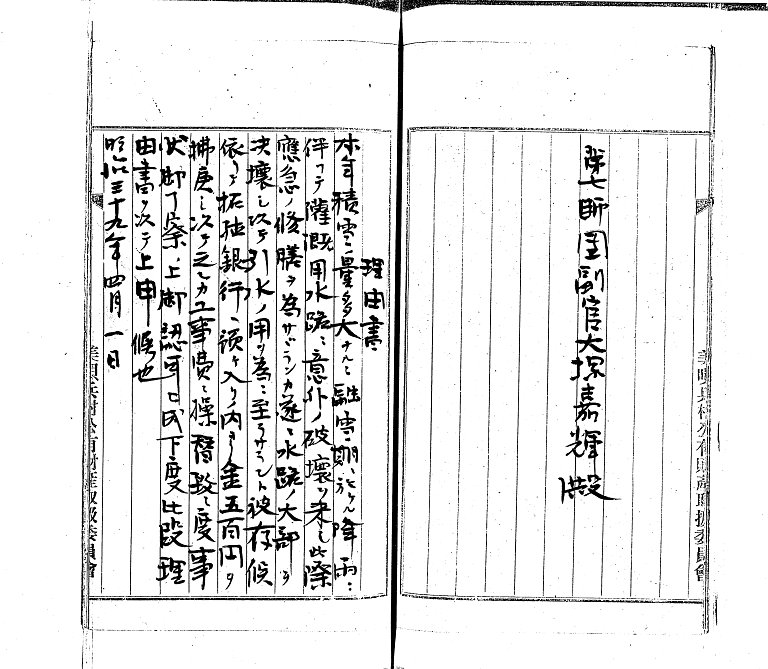 第七師団副官大塚嘉輝殿
理由書
本年積雪ノ量多大ナルト融雪期ニ於ケル降雨ニ
伴フテ灌漑用水路ニ意外ノ破壊ヲ来シ此際
應急ノ修膳ヲ為サヾランカ遂ニ水路ノ大部ヲ
決壊シ以テ引水ノ用ヲ為ニ至ラサラント被存候
依テ拓殖銀行ヘ預ケ入ノ内ヨリ金五百円ヲ
拂戻シ以テ之レカ工事費ニ操替致シ度事
状御了察ノ上御認可相成下度此段理
由書ヲ以テ上申候也
明治三十九年四月一日
美瑛兵村公有財産取扱委員會